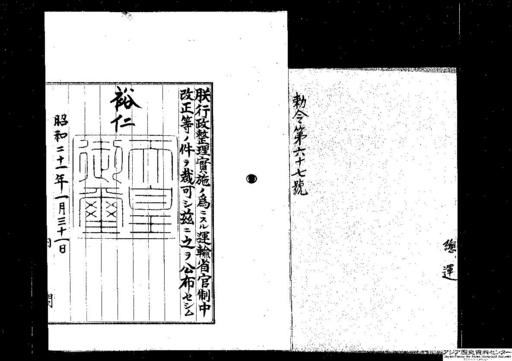 勅令第六十七號
朕行政整理實施ノ爲ニスル運輸省官制中
改正等ノ件ヲ裁可シ茲ニ之ヲ公布セシム
裕仁
天皇
御璽
昭和二十一年一月三十一日
總
運
アジア歴史資料センター